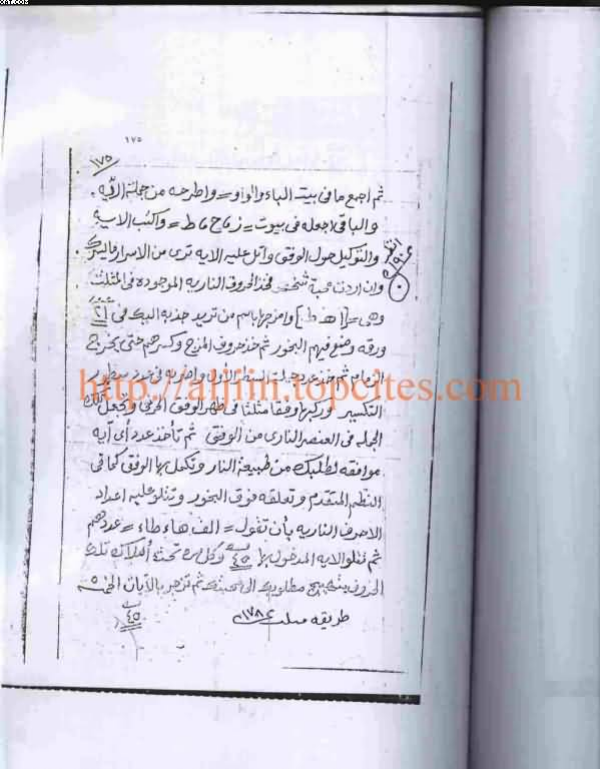 ١٧٥
١٧٥
ثم اجمع ما فى بيت الباء والواو = واطرحه من جملة الآيه .
والباقى اجعله فى بيوت = ز ماح ماط = واكتب الايه
والتوكيل حول الوفق واتل عليه الايه ترى من الاسرار ماليسرك .
وان اردت محبة شخص فخذ الحروف الناريه الموجوده فى المثلث
وهى = [اهـ ط] وامزجها باسم من تريد جذبه اليك فى
ورقه وضع فيهم البخور ثم خذ حروف المزج وكسرهم حتى يخرج
الزمام ثم خذ عدد جملة السطر الأول واضربه فى عدد سطور
http://aljfin.topcites.com
التكسير وركبها وفقا مثلثا فى ظهر الوفق الحرفى وتجعل تلك
الجمله فى العنصر النارى من الوفق ثم تأخذ عدد أى آيه
موافقه لطلبك من طبيعة النار وتكمل بها الوفق كما فى
النظم المتقدم وتعلقه فوق البخور وتتلو عليه اعداد
الاحرف الناريه بأن تقول = الف هاء طاء = عددهم
ثم تتلو الايه المدخول بها ٤٥ وكل مره تحث الملائكه تلك
الحروف بتهييج مطلوبك الى محبتك ثم تزجر بالآيات
طريقه مثلث
٤٥